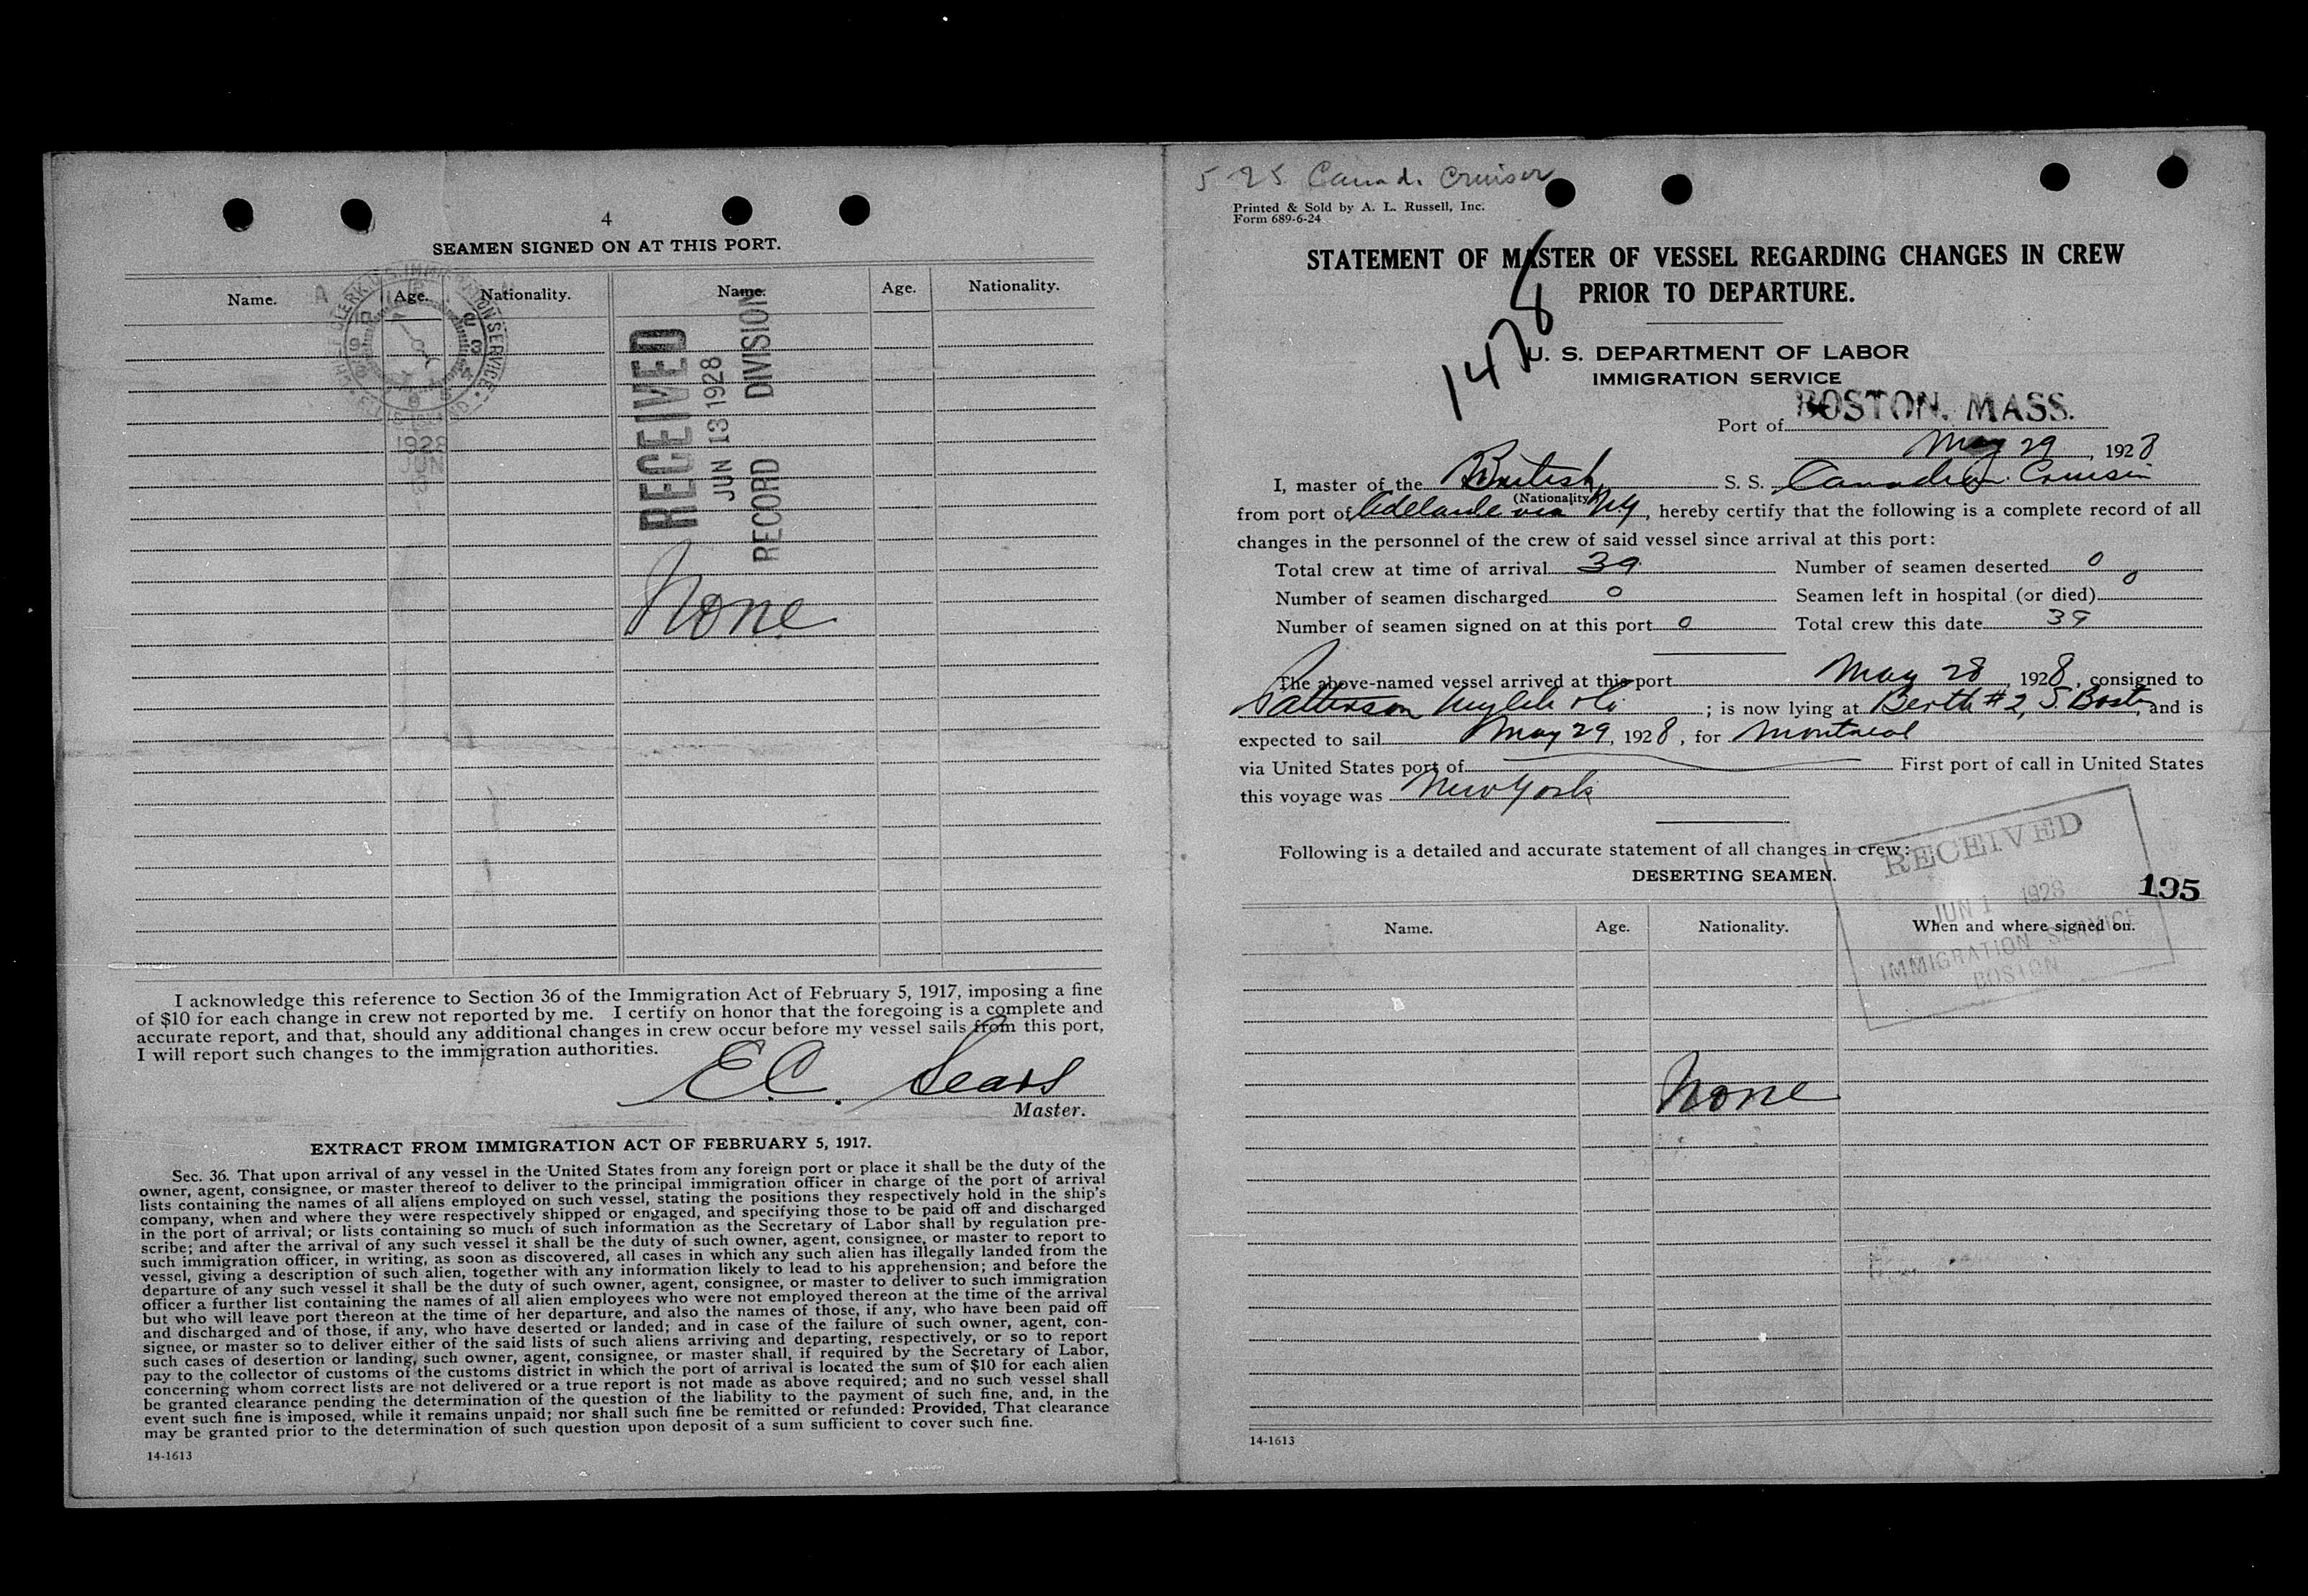 4
SEAMEN SIGNED ON AT THIS PORT.
Name. Age. Nationality. Name. Age. Nationality.
1928
JUN
13
RECEIVED
JUN 13 1928
RECORD DIVISION
None
I acknowledge this reference to Section 36 of the Immigration Act of February 5, 1917, imposing a fine
of $10 for each change in crew not reported by me. I certify on honor that the foregoing is a complete and
accurate report, and that, should any additional changes in crew occur before my vessel sails from this port,
I will report such changes to the immigration authorities.
E.C. Sears
Master.
EXTRACT FROM IMMIGRATION ACT OF FEBRUARY 5, 1917.
Sec. 36. That upon arrival of any vessel in the United States from any foreign port or place it shall be the duty of the
owner, agent, consignee, or master thereof to deliver to the principal immigration officer in charge of the port of arrival
lists containing the names of all aliens employed on such vessel, stating the positions they respectively hold in the ship's
company, when and where they were respectively shipped or engaged, and specifying those to be paid off and discharged
in the port of arrival; or lists containing so much of such information as the Secretary of Labor shall by regulation pre-
scribe; and after the arrival of any such vessel it shall be the duty of such owner, agent, consignee, or master to report to
such immigration officer, in writing, as soon as discovered, all cases in which any such alien has illegally landed from the
vessel, giving a description of such alien, together with any information likely to lead to his apprehension; and before the
departure of any such vessel it shall be the duty of such owner, agent, consignee, or master to deliver to such immigration
officer a further list containing the names of all alien employees who were not employed thereon at the time of the arrival
but who will leave port thereon at the time of her departure, and also the names of those, if any, who have been paid off
and discharged and of those, if any, who have deserted or landed; and in case of the failure of such owner, agent, con-
signee, or master so to deliver either of the said lists of such aliens arriving and departing, respectively, or so to report
such cases of desertion or landing, such owner, agent, consignee, or master shall, if required by the Secretary of Labor,
pay to the collector of customs of the customs district in which the port of arrival is located the sum of $10 for each alien
concerning whom correct lists are not delivered or a true report is not made as above required; and no such vessel shall
be granted clearance pending the determination of the question of the liability to the payment of such fine, and, in the
event such fine is imposed, while it remains unpaid; nor shall such fine be remitted or refunded: Provided, That clearance
may be granted prior to the determination of such question upon deposit of a sum sufficient to cover such fine.
14-1613
5-25 Canad. Cruiser
Printed & Sold by A. L. Russell, Inc.
Form 689-6-24
STATEMENT OF MASTER OF VESSEL REGARDING CHANGES IN CREW
PRIOR TO DEPARTURE.
U. S. DEPARTMENT OF LABOR
IMMIGRATION SERVICE
Port of BOSTON, MASS.
May 29, 1928
I, master of the British S. S. Canadian Cruiser
(Nationality)
from port of Adelaide via NY, hereby certify that the following is a complete record of all
changes in the personnel of the crew of said vessel since arrival at this port:
Total crew at time of arrival 39 Number of seamen deserted 0
Number of seamen discharged 0 Seamen left in hospital (or died) 0
Number of seamen signed on at this port 0 Total crew this date 39
The above-named vessel arrived at this port May 28, 1928, consigned to
Patterson Wylde & Co ; is now lying at Berth #2, S. Boston, and is
expected to sail May 29, 1928, for Montreal
via United States port of First port of call in United States
this voyage was New York
Following is a detailed and accurate statement of all changes in crew:
DESERTING SEAMEN.
RECEIVED
JUN 1 1928
IMMIGRATION SERVICE
BOSTON
195
Name. Age. Nationality. When and where signed on.
None
14-1613